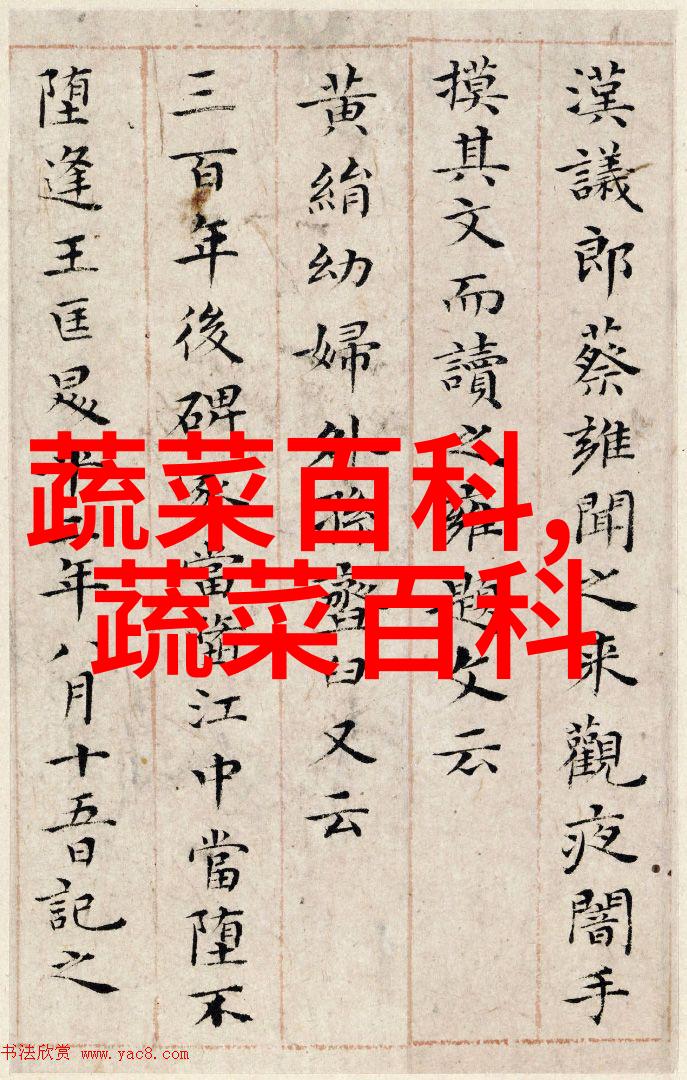 漢議郎蔡雍聞之来觀夜闇手
摸其文而讀之雍題文云
黄絹幼婦外孫臼又云
三百年後碑冢當堕江中當堕不
堕逢王匡年八月十五日記之
蔬菜百科,
蔬菜百科
书法欣赏 www.yac8.com